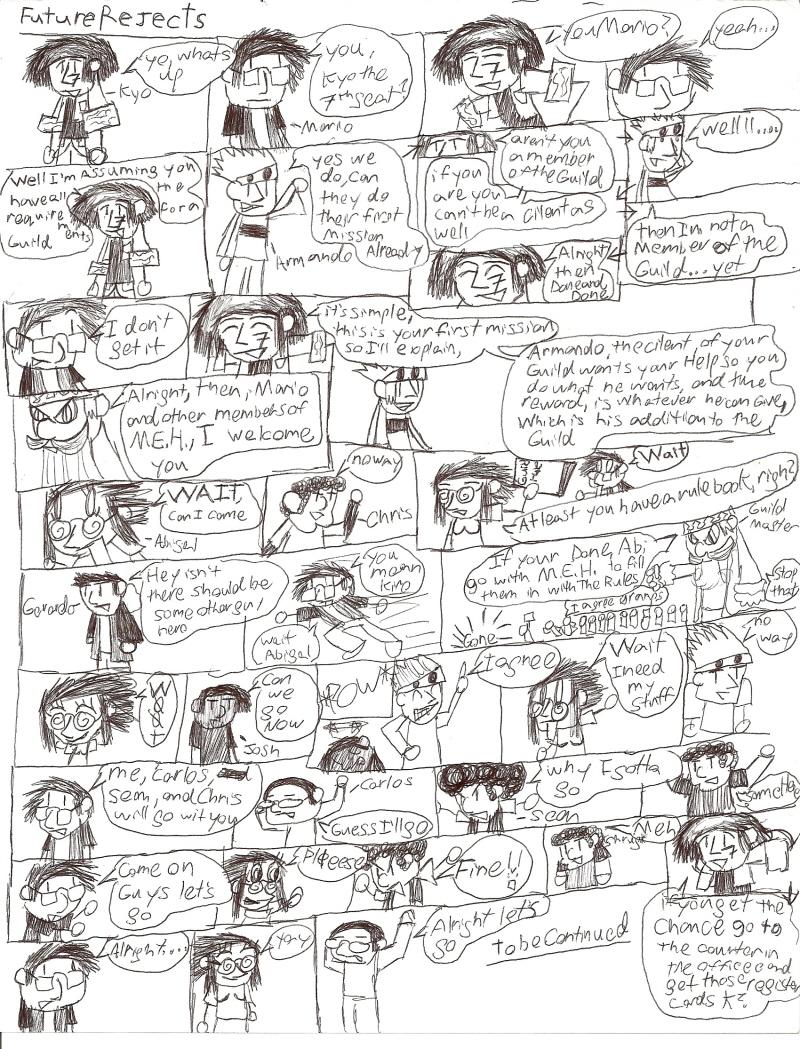 FutureRejects
yo, whats
up
Kyo
you,
Kyo the
7th seat?
Mario
You Mario?
yeah...
Well I'm Assuming you
have all the
require for a
ments
Guild
yes we
do, can
they do
their first
mission
Already
Armando
aren't you
a member
of the Guild
if you
are you
can't be a cilent as
well
Wellll....
then I'm not a
Member of the
Guild...yet
Alright
then
Done and
Done
I don't
get it
it's simple,
this is your first mission
so I'll explain,
Armando, the cilent, of your
Guild wants your Help so you
do what he wants, and the
reward, is whatever he can Give,
which is his addition to the
Guild
Alright, then, Mario
and other members of
M.E.H., I welcome
you
WAIT,
can I come
Abigal
no way
Chris
Wait
At least you have a rule book, right?
Guild
master
Gerardo
Hey isn't
there should be
some other guy
here
You
mean
him
wait
Abigal
If your Done, Abi
go with M.E.H. to fill
them in with The Rules
I agree
Gone
Stop
that
Wait
Can
we
go
Now
Josh
*POW*
I agree
Wait
I need
my
stuff
no
way
me, Carlos,
sean, and Chris
will go wit you
Carlos
Guess I'll go
why I gotta
go
sean
same Here
Come on
Guys let's
go
Pleeese
Fine!!
Meh
If you get the
Chance go to
the counter in
the office and
get those register
cards K?
Alright...
Yay
Alright let's
go
to be continued